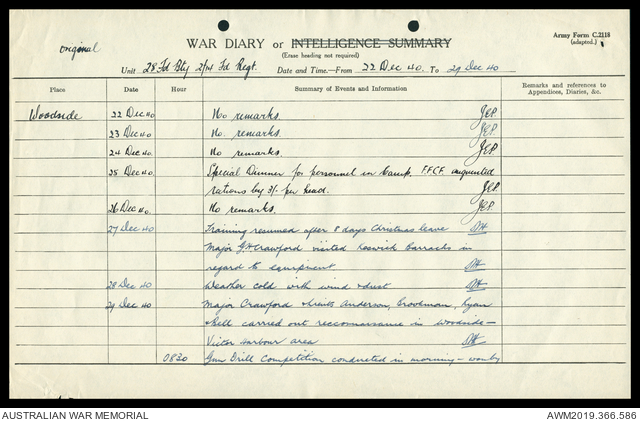 Original
Army Form C.2118
(adapted.)
WAR DIARY or INTELLIGENCE SUMMARY
(Erase heading not required)
Unit 28 Fd Bty 2/14 Fd Regt. Date and Time—From 22 Dec 40. To 29 Dec 40
Place Date Hour Summary of Events and Information Remarks and references to Appendices, Diaries, &c.
Woodside 22 Dec 40 No remarks.
23 Dec 40 No remarks.
24 Dec 40. No remarks.
25 Dec 40. Special Dinner for personnel in Camp. F.F.C.F. augmented
rations by 3/- per head.
26 Dec 40. No remarks.
27 Dec 40 Training resumed after 8 days Christmas leave
Major G.H Crawford visited Keswick Barracks in
regard to equipment
28 Dec 40 Weather cold with wind & dust
29 Dec 40 Major Crawford Anderson, Ryan
carried out reconnaissance in Woodside –
Victor Harbour area
0830 Gun Drill Competition conducted in morning – won by
AUSTRALIAN WAR MEMORIAL AWM2019.366.586